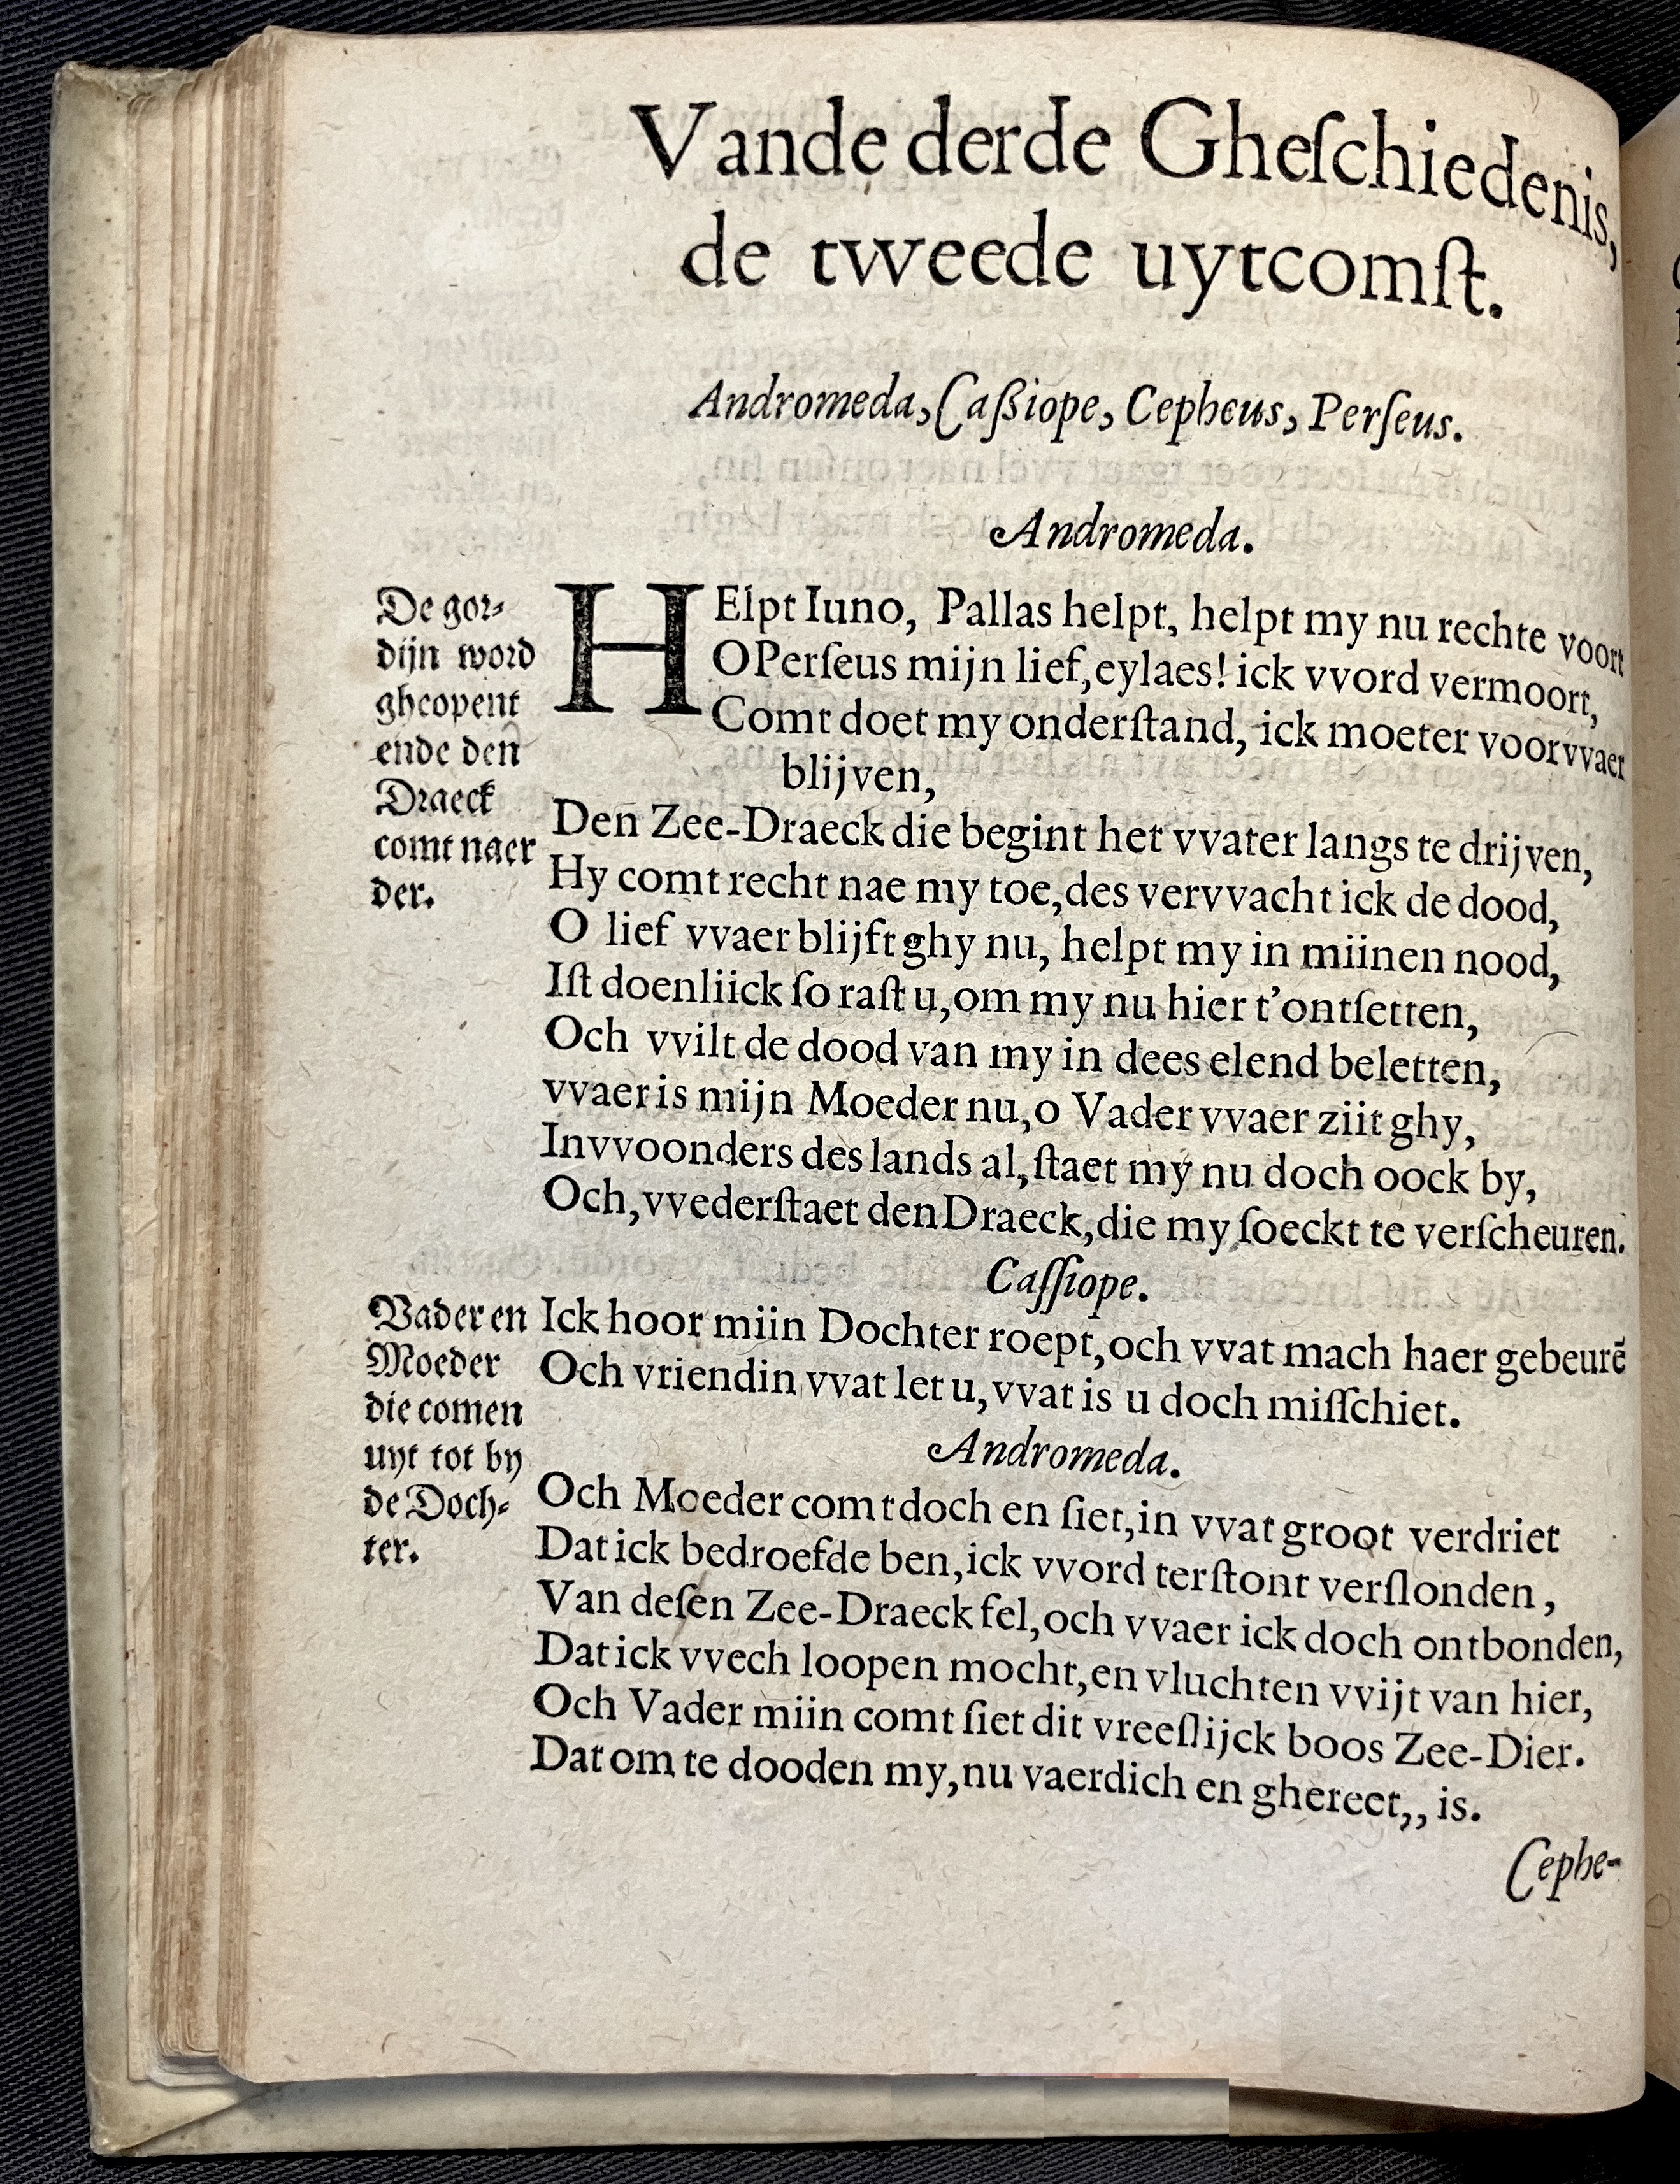 Vande derde Gheſchiedenis,
de tweede uytcomſt.
Andromeda, Caßiope, Cepheus, Perſeus.
Andromeda.
De gor-
dijn word
gheopent
ende den
Draeck
comt naer
der.
HElpt Iuno, Pallas helpt, helpt my nu rechte voort
O Perſeus mijn lief, eylaes! ick vvord vermoort,
Comt doet my onderſtand, ick moeter voorvvaer
blijven,
Den Zee-Draeck die begint het vvater langs te drijven,
Hy comt recht nae my toe, des vervvacht ick de dood,
O lief vvaer blijft ghy nu, helpt my in miinen nood,
Iſt doenliick ſo raſt u, om my nu hier t'ontſetten,
Och vvilt de dood van my in dees elend beletten,
vvaer is mijn Moeder nu, o Vader vvaer ziit ghy,
Invvoonders des lands al, ſtaet my nu doch oock by,
Och, vvederſtaet den Draeck, die my ſoeckt te verſcheuren.
Caſſiope.
Vader en
Moeder
die comen
uyt tot by
de Doch-
ter.
Ick hoor miin Dochter roept, och vvat mach haer gebeurẽ
Och vriendin vvat let u, vvat is u doch miſſchiet.
Andromeda.
Och Moeder comt doch en ſiet, in vvat groot verdriet
Dat ick bedroefde ben, ick vvord terſtont verſlonden,
Van deſen Zee-Draeck fel, och vvaer ick doch ontbonden,
Dat ick vvech loopen mocht, en vluchten vvijt van hier,
Och Vader miin comt ſiet dit vreeſlijck boos Zee-Dier.
Dat om te dooden my, nu vaerdich en ghereet,, is.
Cephe-